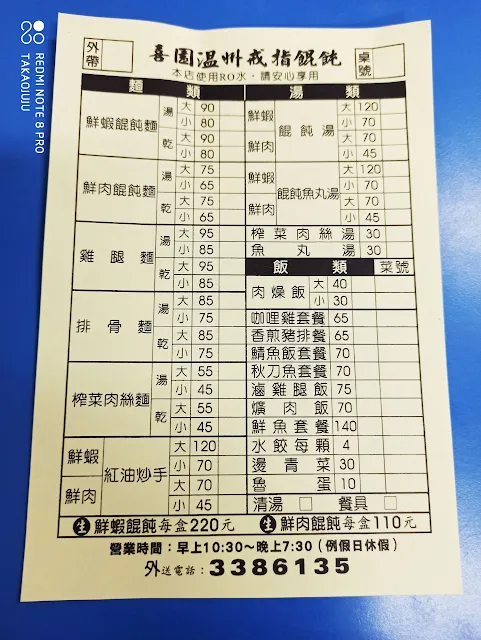 REDMI NOTE 8 PRO
TAKAOJUJU
外帶
喜園温州戒指餛飩
桌號
本店使用RO水，請安心享用
麵類
鮮蝦餛飩麵 湯 大 90
小 80
乾 大 90
小 80
鮮肉餛飩麵 湯 大 75
小 65
乾 大 75
小 65
雞腿麵 湯 大 95
小 85
乾 大 95
小 85
排骨麵 湯 大 85
小 75
乾 大 85
小 75
榨菜肉絲麵 湯 大 55
小 45
乾 大 55
小 45
紅油炒手 鮮蝦 大 120
小 70
鮮肉 大 70
小 45
湯類
餛飩湯 鮮蝦 大 120
小 70
鮮肉 大 70
小 45
餛飩魚丸湯 鮮蝦 大 120
小 70
鮮肉 大 70
小 45
榨菜肉絲湯 30
魚丸湯 30
飯類 菜號
肉燥飯 大 40
小 30
咖哩雞套餐 65
香煎豬排餐 65
鯖魚飯套餐 70
秋刀魚套餐 70
滷雞腿飯 75
爌肉飯 70
鮮魚套餐 140
水餃每顆 4
燙青菜 30
魯蛋 10
清湯 □ 餐具 □
生 鮮蝦餛飩每盒220元 生 鮮肉餛飩每盒110元
營業時間：早上10:30～晚上7:30（例假日休假）
外送電話：3386135